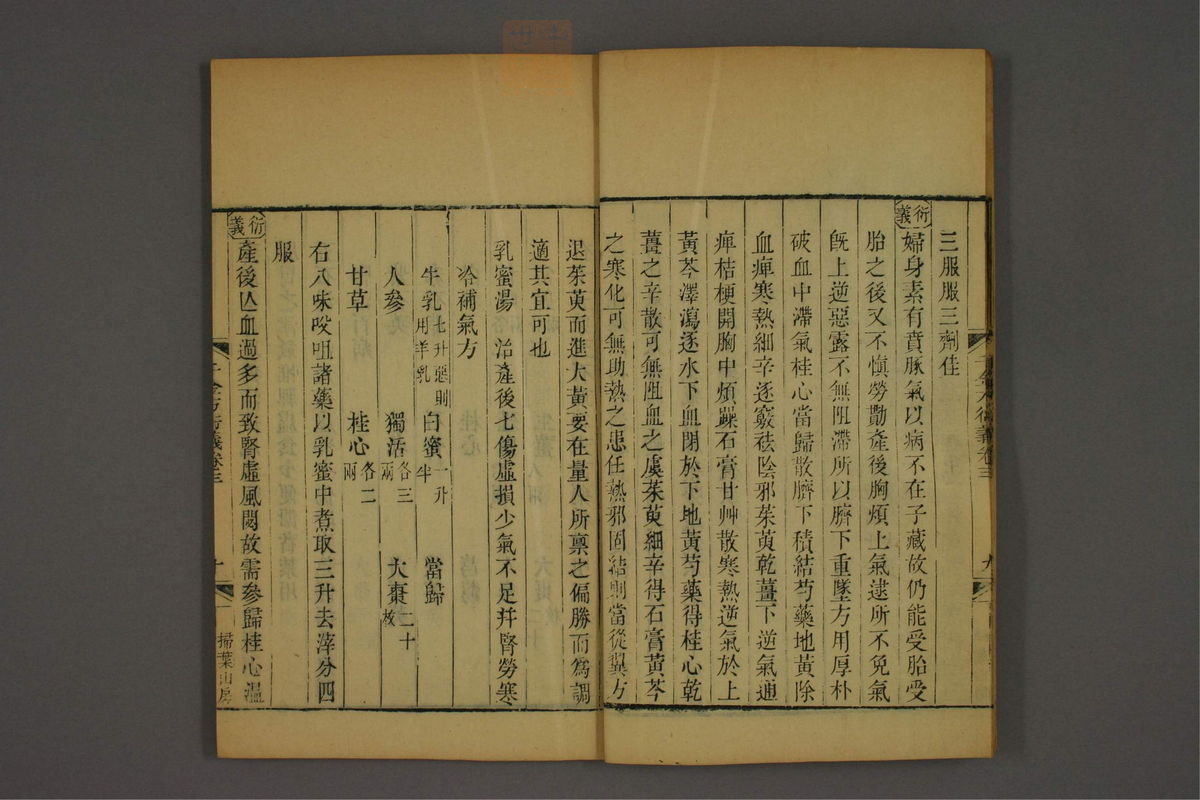 三服服三劑佳
衍義
婦身素有賁豚氣以病不在子藏故仍能受胎受
胎之後又不慎勞勩產後胸煩上氣逮所不免氣
旣上逆惡露不無阻滯所以臍下重墜方用厚朴
破血中滯氣桂心當歸散臍下積結芍藥地黃除
血痺寒熱細辛逐竅祛陰邪茱萸乾薑下逆氣通
痺桔梗開胸中煩躁石膏甘艸散寒熱逆氣於上
黃芩澤瀉逐水下血閉於下地黃芍藥得桂心乾
薑之辛散可無阻血之虞茱萸細辛得石膏黃芩
之寒化可無助熱之患任熱邪固結則當從翼方
退茱萸而進大黃要在量人所稟之偏勝而爲調
適其宜可也
乳蜜湯 治產後七傷虛損少氣不足幷腎勞寒
冷補氣方
牛乳七升惡則用羊乳 白蜜一升半 當歸
人參 獨活各三兩 大棗二十枚
甘草 桂心各二兩
右八味㕮咀諸藥以乳蜜中煮取三升去滓分四
服
衍義
產後亾血過多而致腎虛風閟故需參歸桂心溫
千金方衍義卷三
九
掃葉山房